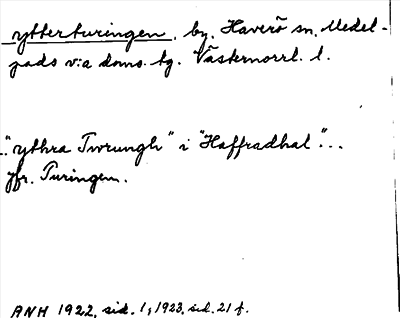 ytterturingen, by. Haverö sn. Medel-
pads v:a doms. tg. Västernorrl. l.
..."ythra Twrungh" i "Haffradhal"...
jfr. Turingen.
ANH 1922, sid. 1, 1923, sid. 21 f.